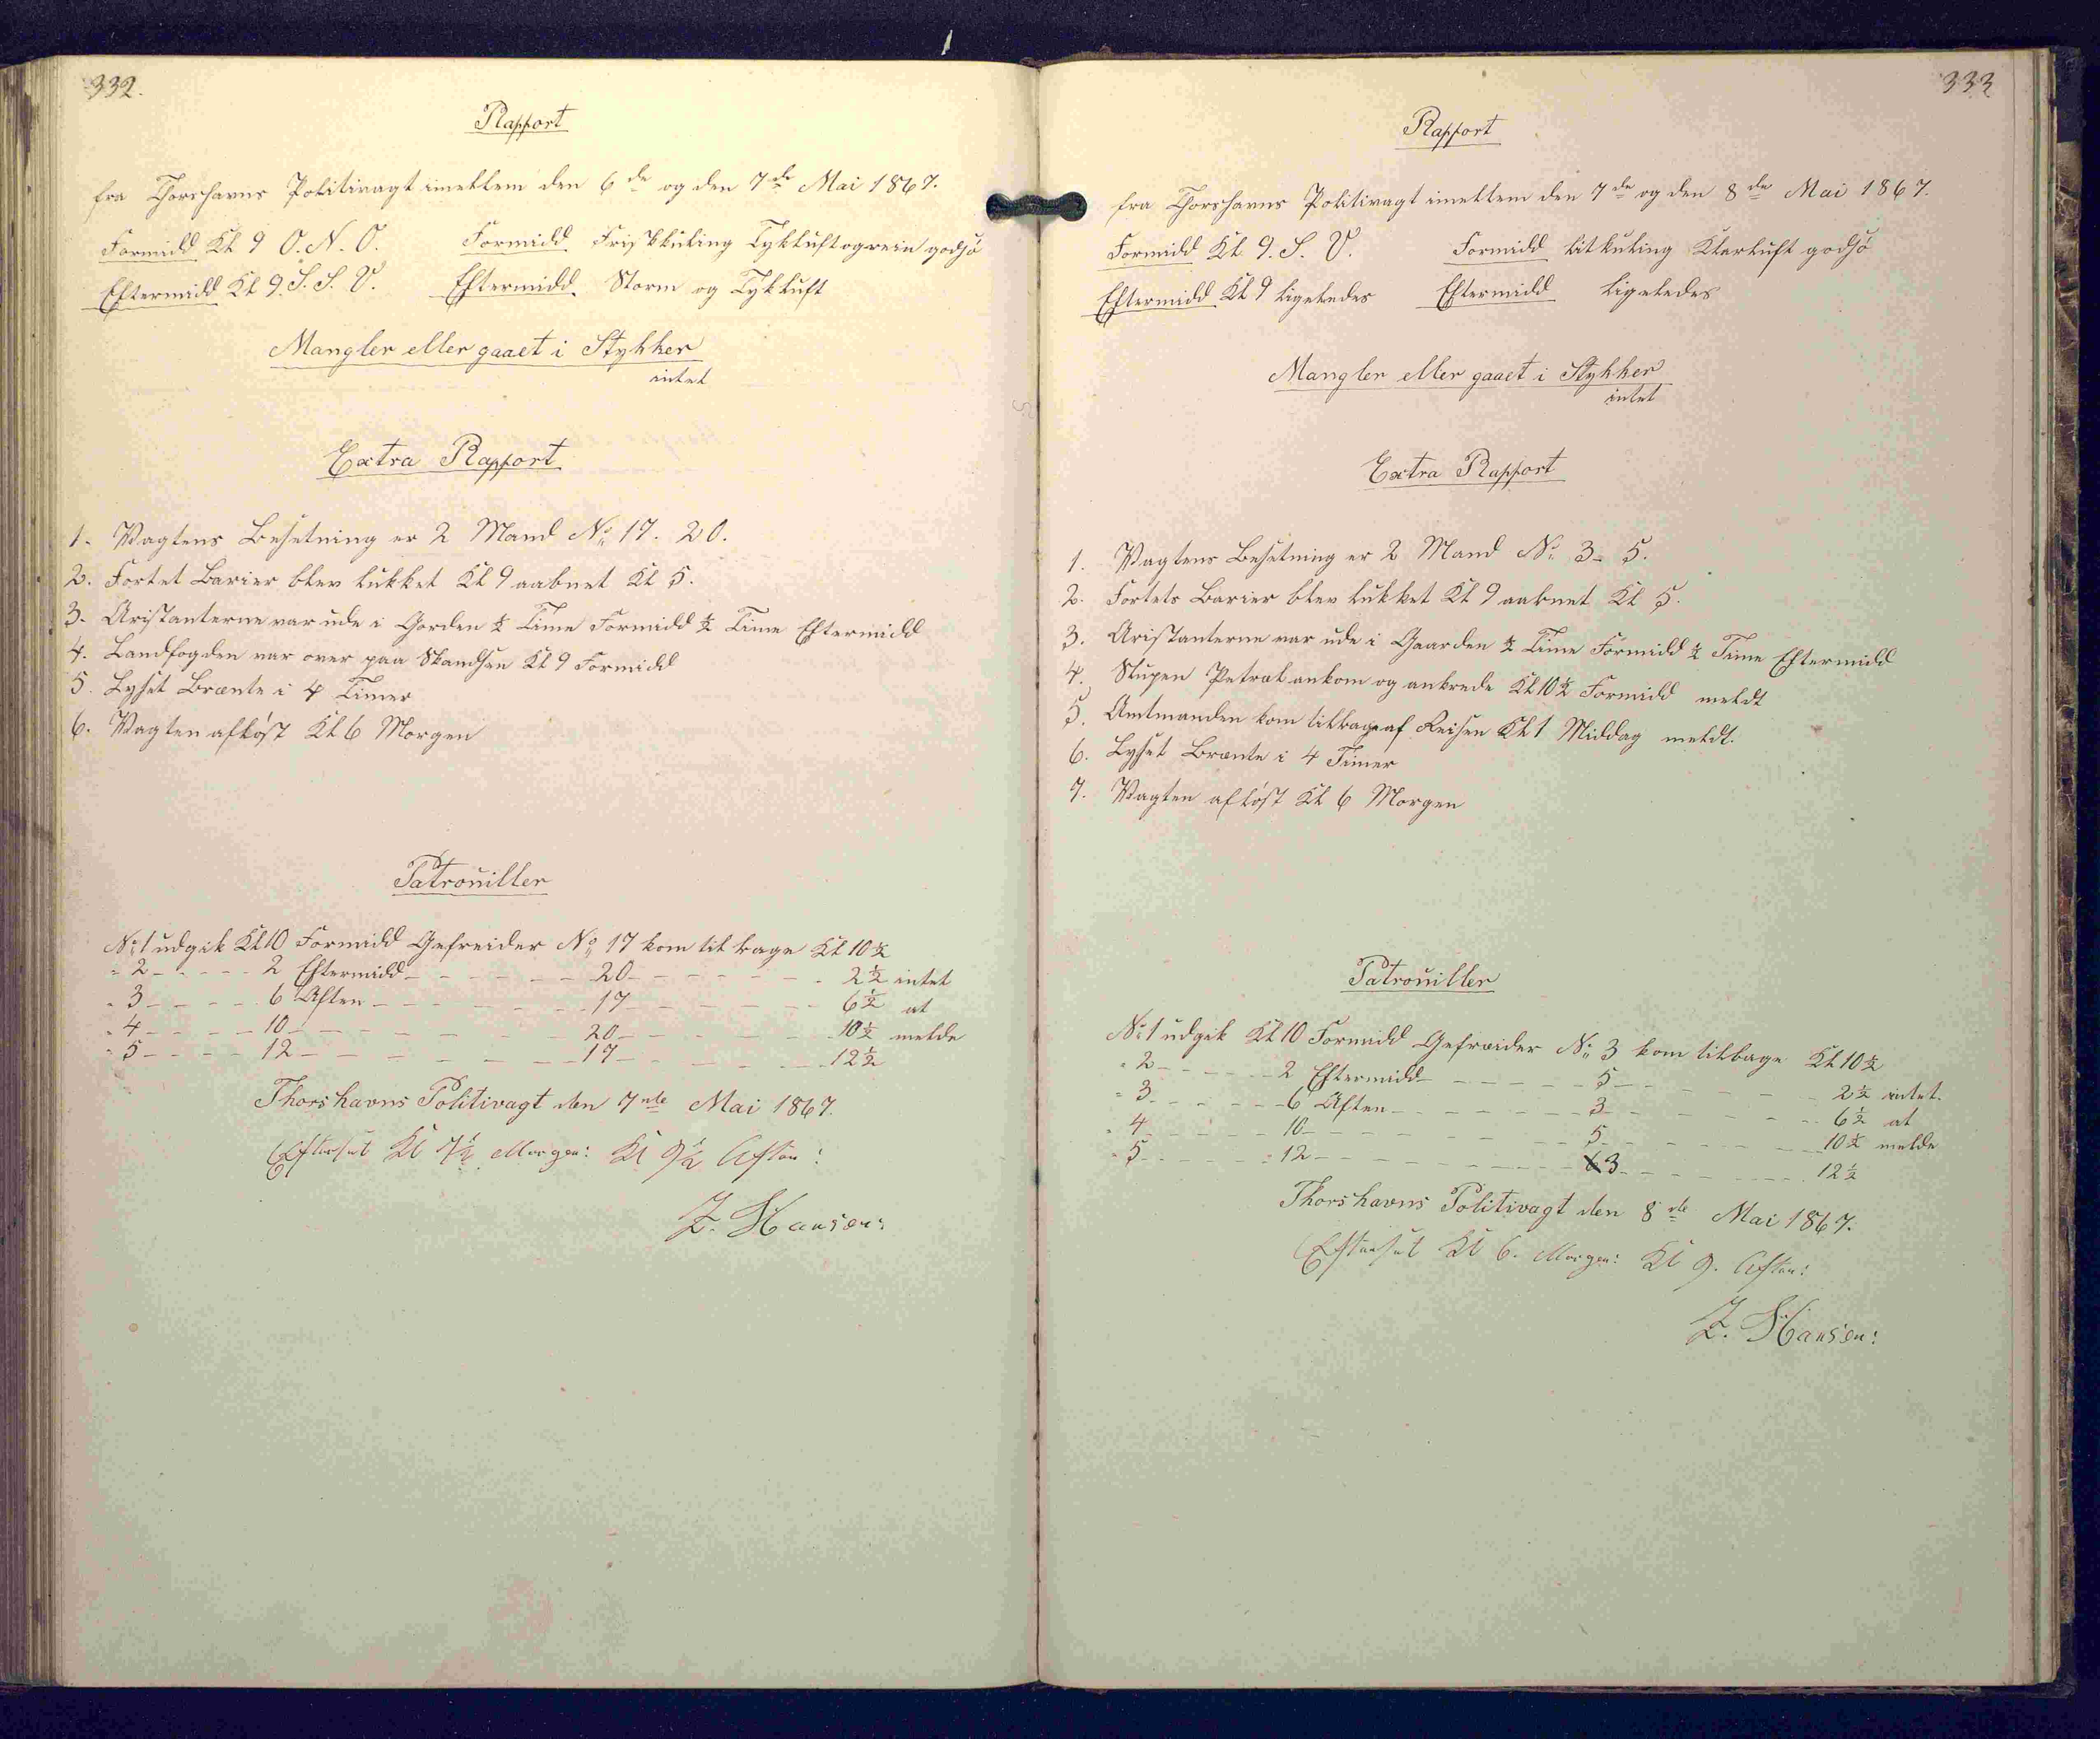 332.
Rapport
fra Thorshavns Politivagt imellem den 6de og den 7de Mai 1867.
Formidd Kl 9 O. N. O. Formidd. Friskkuling Tykluft og rein godsø
Eftermidd Kl 9. S. S. V. Eftermidd. Storm og Tykluft
Mangler eller gaaet i Stykker
intet
Extra Rapport
1. Vagtens Besetning er 2 Mand No 17. 20.
2. Fortet Barier blev lukket Kl 9 aabnet Kl 5.
3. Aristanterne var ude i Gorden ½ Time Formidd ½ Time Eftermidd
4. Landfogden var over paa Skandsen Kl 9 Formidd
5. Lyset Brænte i 4 Timer
6. Vagten afløst Kl 6 Morgen
Patrouiller
No 1 udgik Kl 10 Formidd Gefreider No 17 kom tilbage Kl 10½
" 2 - - - - - 2 Eftermidd - - - - - 20 - - - - - 2½ intet
" 3 - - - - - 6 Aften - - - - - 17 - - - - - 6½ at
" 4 - - - - - 10 - - - - - 20 - - - - - 10½ melde
" 5 - - - - - 12 - - - - - 17 - - - - - 12½
Thorshavns Politivagt den 7de Mai 1867.
Efterset Kl 7½ Morgen: Kl 9½ Aften:
Z. Hansen:
333
Rapport
fra Thorshavns Politivagt imellem den 7de og den 8de Mai 1867.
Formidd Kl 9. S. V. Formidd litkuling Klarluft godsø
Eftermidd Kl 9 ligeledes Eftermidd ligeledes
Mangler eller gaaet i Stykker
intet
Extra Rapport
1. Vagtens Besetning er 2 Mand No 3- 5.
2. Fortets Barier blev lukket Kl 9 aabnet Kl 5.
3. Aristanterne var ude i Gaarden ½ Time Formidd ½ Time Eftermidd
4. Slupen Petral ankom og ankrede Kl 10½ Formidd meldt
5. Amtmanden kom tilbage af Reisen Kl 1 Middag meldt.
6. Lyset Brænte i 4 Timer
7. Vagten afløst Kl 6 Morgen
Patrouiller
No 1 udgik Kl 10 Formidd Gefræider No 3 kom tilbage Kl 10½
" 2 - - - - - 2 Eftermidd - - - - - 5 - - - - - 2½ intet.
" 3 - - - - - 6 Aften - - - - - 3 - - - - - 6½ at
" 4 - - - - - 10 - - - - - 5 - - - - - 10½ melde
" 5 - - - - - 12 - - - - - 3 - - - - - 12½
Thorshavns Politivagt den 8de Mai 1867.
Efterset Kl 6. Morgen: Kl 9. Aften:
Z. Hansen: